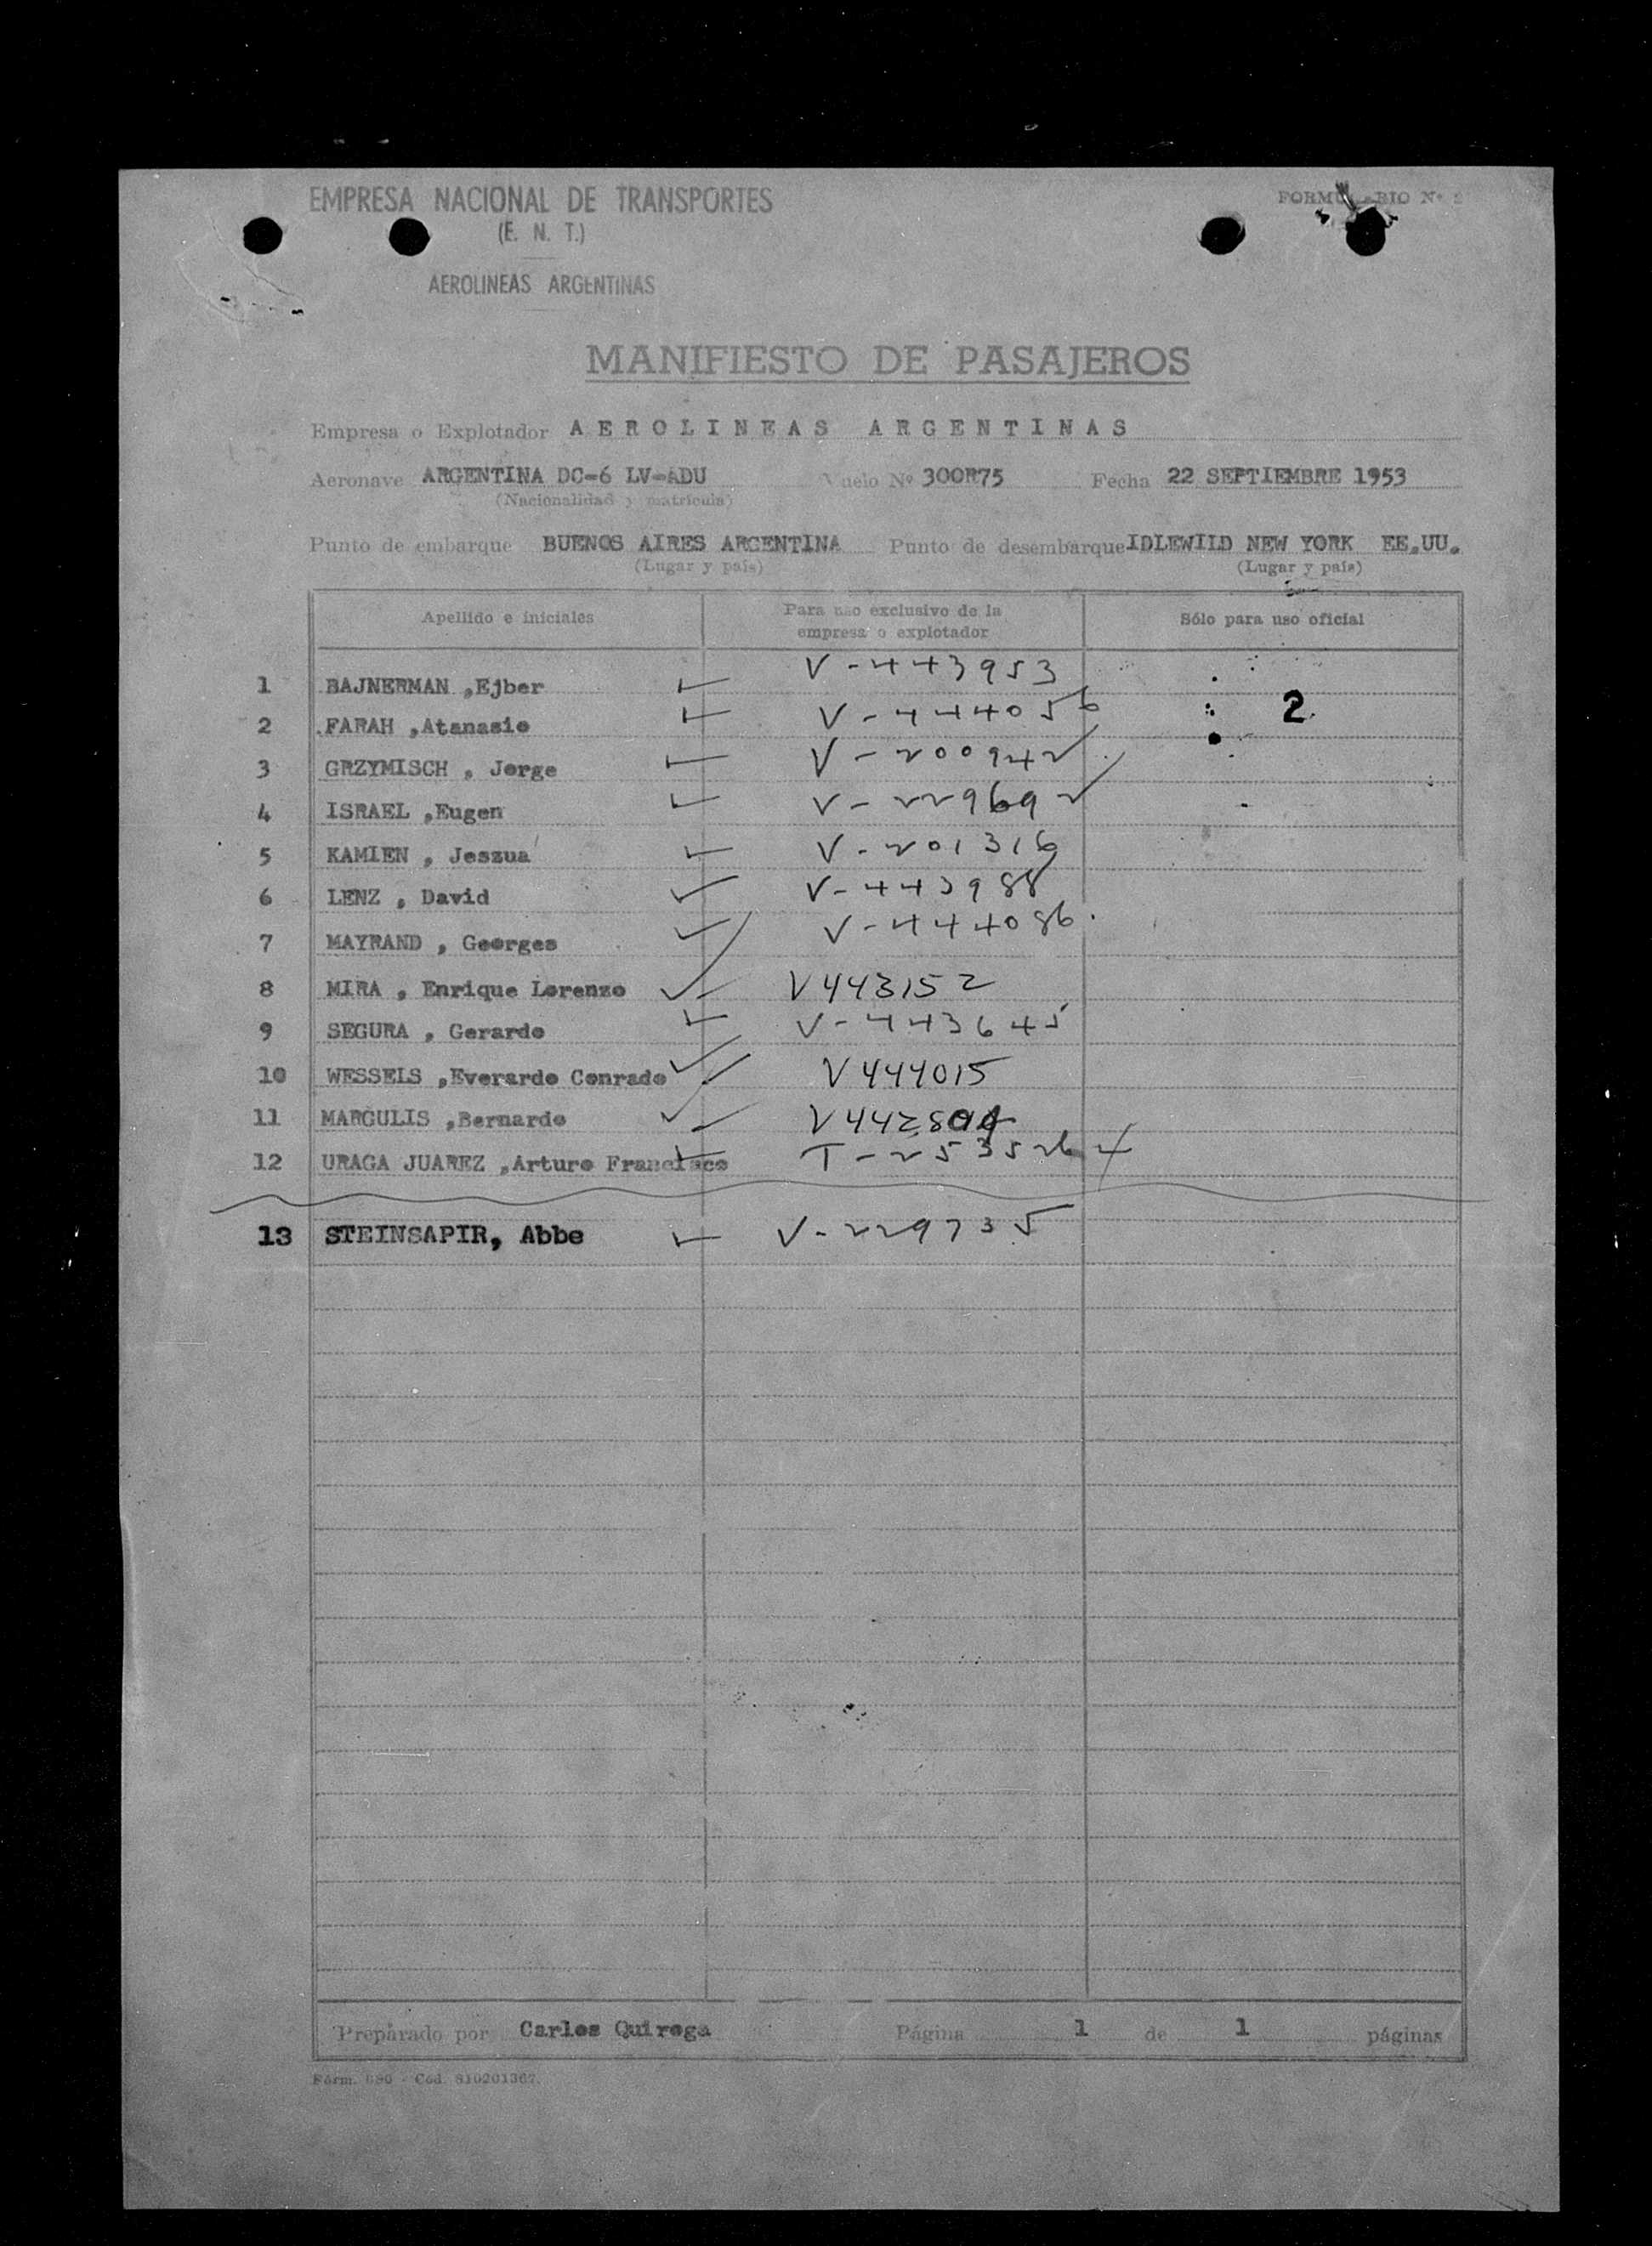 EMPRESA NACIONAL DE TRANSPORTES
(E. N. T.)
AEROLINEAS ARGENTINAS
FORMULARIO Nº
MANIFIESTO DE PASAJEROS
Empresa o Explotador AEROLINEAS ARGENTINAS
Aeronave ARGENTINA DC-6 LV-ADU Vuelo Nº 300R75 Fecha 22 SEPTIEMBRE 1953
(Nacionalidad y matrícula)
Punto de embarque BUENOS AIRES ARGENTINA Punto de desembarque IDLEWILD NEW YORK EE.UU.
(Lugar y país) (Lugar y país)
Apellido e iniciales Para uso exclusivo de la empresa o explotador Sólo para uso oficial
1 BAJNERMAN ,Ejber V-443953
2 FARAH ,Atanasio V-444056 2
3 GRZYMISCH , Jorge V-200942
4 ISRAEL ,Eugen V-229692
5 KAMIEN , Jeszua V-201316
6 LENZ , David V-443988
7 MAYRAND , Georges V-444086
8 MIRA , Enrique Lorenzo V443152
9 SEGURA , Gerardo V-443645
10 WESSELS ,Everardo Conrado V444015
11 MARGULIS ,Bernardo
12 URAGA JUAREZ ,Arturo Francisco T-2535264
13 STEINSAPIR, Abbe V-229735
Preparado por Carlos Quiroga Página 1 de 1 páginas
Form. 690 - Cod. 810201367.